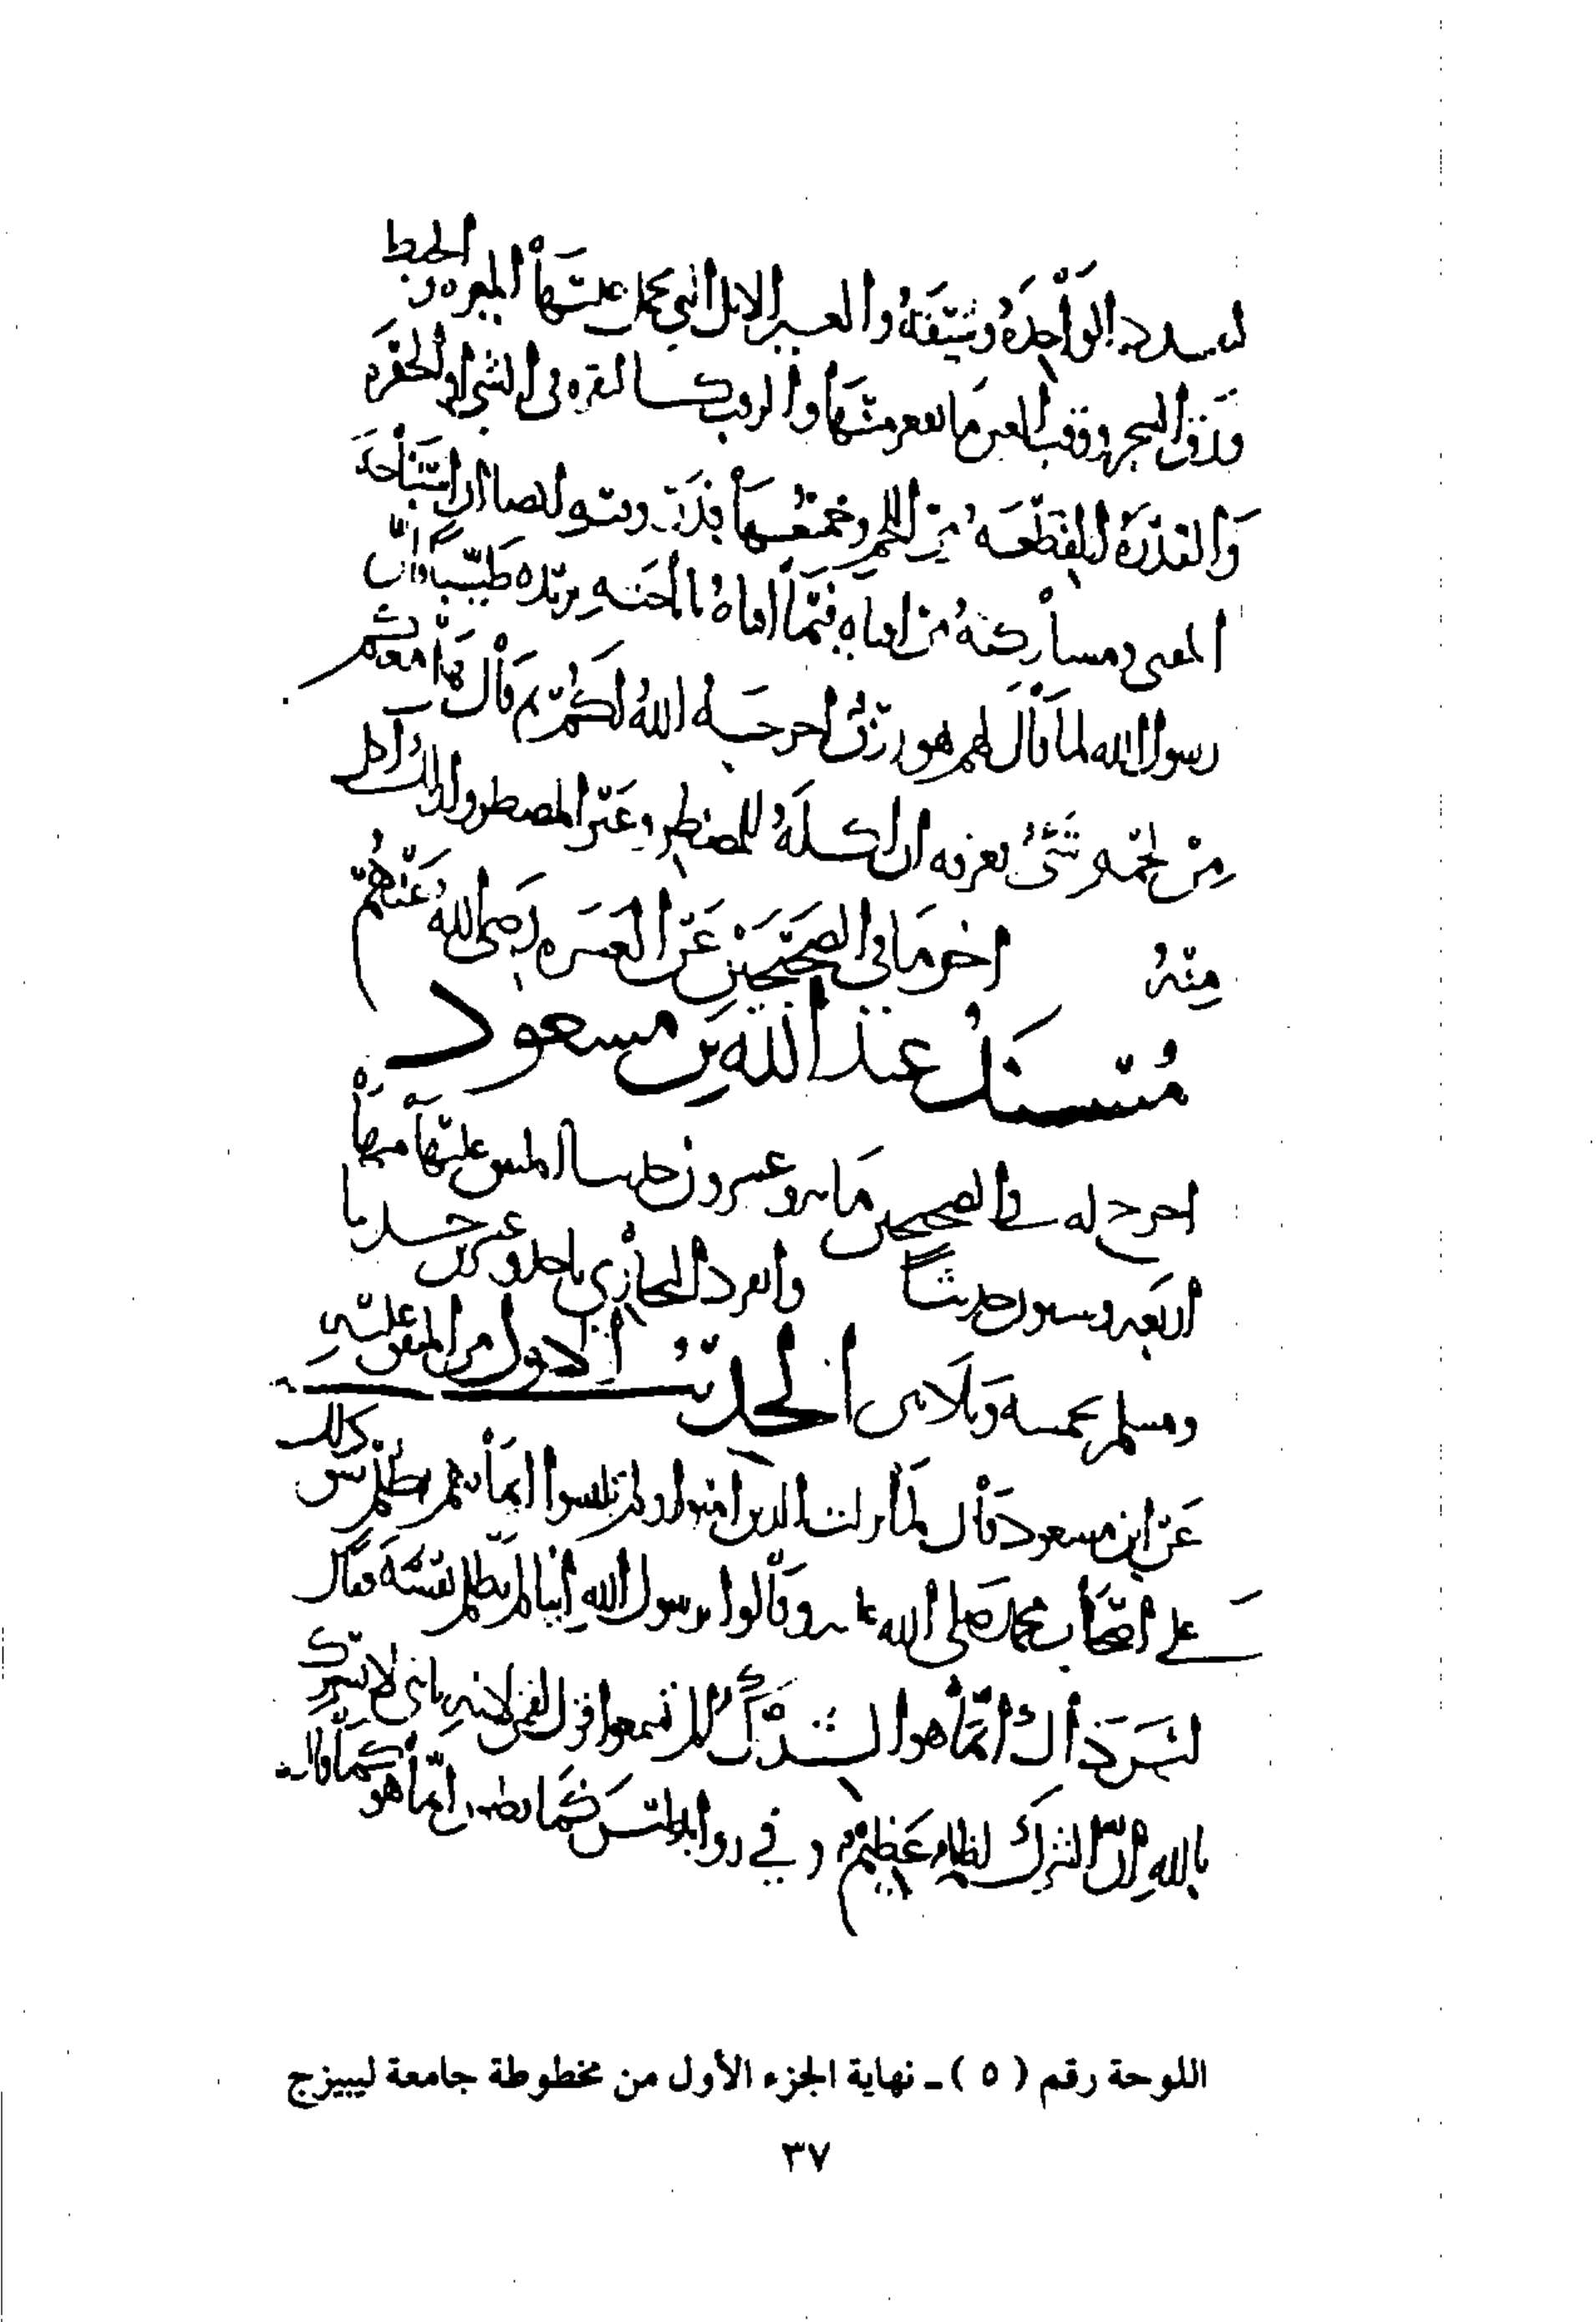 الواحدة وشيقة والعير الإبل التي تحمل عليها الميرة والخبط
ورق الشجر ووقب العين ما تقعر منها والوقب كالنقرة في الشيء أو الحفرة
والفدرة القطعة من اللحم وجمعها فدر
رسول الله لما قال لهم هو رزق أخرجه الله لكم ثم قال هل معكم
من لحمه شيء يعرفه أن أكله للمضطر وغير المضطر ولذلك أكل
منه آخر ما في الصحيحين عن العشرة رضي الله عنهم
مسند عبد الله بن مسعود
أخرج له في الصحيحين مائة وعشرون حديثا المتفق عليها منها
أربعة وستون حديثا وانفرد البخاري بأحد وعشرين حديثا
ومسلم بخمسة وثلاثين الحديث الأول من المتفق عليه
عن ابن مسعود قال لما نزلت الذين آمنوا ولم يلبسوا إيمانهم بظلم شق ذلك
على أصحاب محمد صلى الله عليه وقالوا يرسول الله أينا لم يظلم نفسه فقال
ليس ذاك إنما هو الشرك ألم تسمعوا قول لقمن لابنه يا بني لا تشرك
بالله إن الشرك لظلم عظيم وفي رواية ليس كما تظنون إنما هو كما قال
اللوحة رقم (٥) ـ نهاية الجزء الأول من مخطوطة جامعة ليبيزج
٣٧